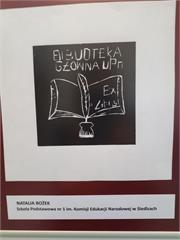 BIBLIOTEKA
GŁÓWNA UPH
Ex
Libris
NATALIA BOŻEK
Szkoła Podstawowa nr 1 im. Komisji Edukacji Narodowej w Siedlcach